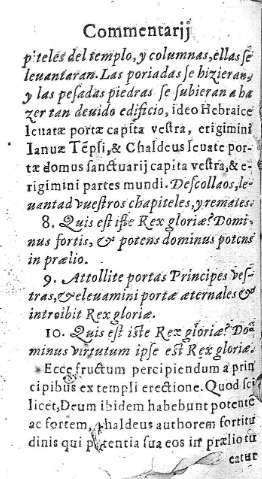 Commentarij
piteles del templo, y columnas, ellas se
leuantaran. Las poriadas se hizieran,
y las pesadas piedras se subieran a ha
zer tan deuido edificio, ideo Hebraice
leuatæ portæ capita vestra, erigimini
Ianuæ Tẽpsi, & Chaldeus leuate por-
tæ domus sanctuarij capita vestra, & e-
rigimini partes mundi. Descollaos, le-
uantad vuestros chapiteles, y remates.
8. Quis est iste Rex gloriæ? Domi-
nus fortis, & potens dominus potens
in prælio.
9. Attollite portas Principes ves-
tras, & eleuamini portæ æternales &
introibit Rex gloriæ.
10. Quis est iste Rex gloriæ? Do
minus virtutum ipse est Rex gloriæ.
Ecce fructum percipiendum a prin
cipibus ex templi erectione. Quod sci
licet, Deum ibidem habebunt potente
ac fortem, haldeus authorem fortitu
dinis qui potentia sua eos in prælio tu
eatur